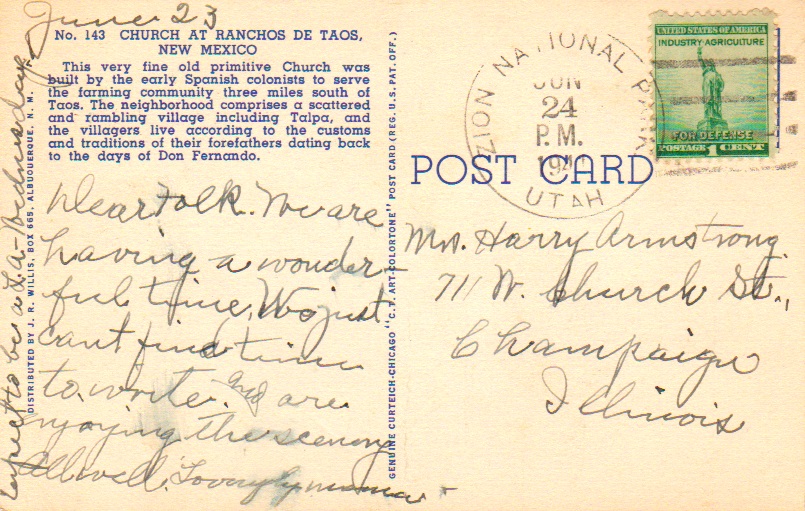 June 23
No. 143 CHURCH AT RANCHOS DE TAOS,
NEW MEXICO
This very fine old primitive Church was
built by the early Spanish colonists to serve
the farming community three miles south of
Taos. The neighborhood comprises a scattered
and rambling village including Talpa, and
the villagers live according to the customs
and traditions of their forefathers dating back
to the days of Don Fernando.
Dear Folk. We are
having a wonder-
ful time. We just
cant find time
to write. and are
enjoying the scenery
All well. Lovingly mama
expect to be in L.A. Wednesday.
DISTRIBUTED BY J. R. WILLIS, BOX 665, ALBUQUERQUE, N. M.
GENUINE CURTEICH-CHICAGO "C. T. ART-COLORTONE" POST CARD (REG. U. S. PAT. OFF.)
POST CARD
ZION NATIONAL PARK
JUN
24
P.M.
UTAH
UNITED STATES OF AMERICA
INDUSTRY AGRICULTURE
FOR DEFENSE
POSTAGE 1 CENT
Mrs. Harry Armstrong.
711 W. Church St.,
Champaign
Illinois